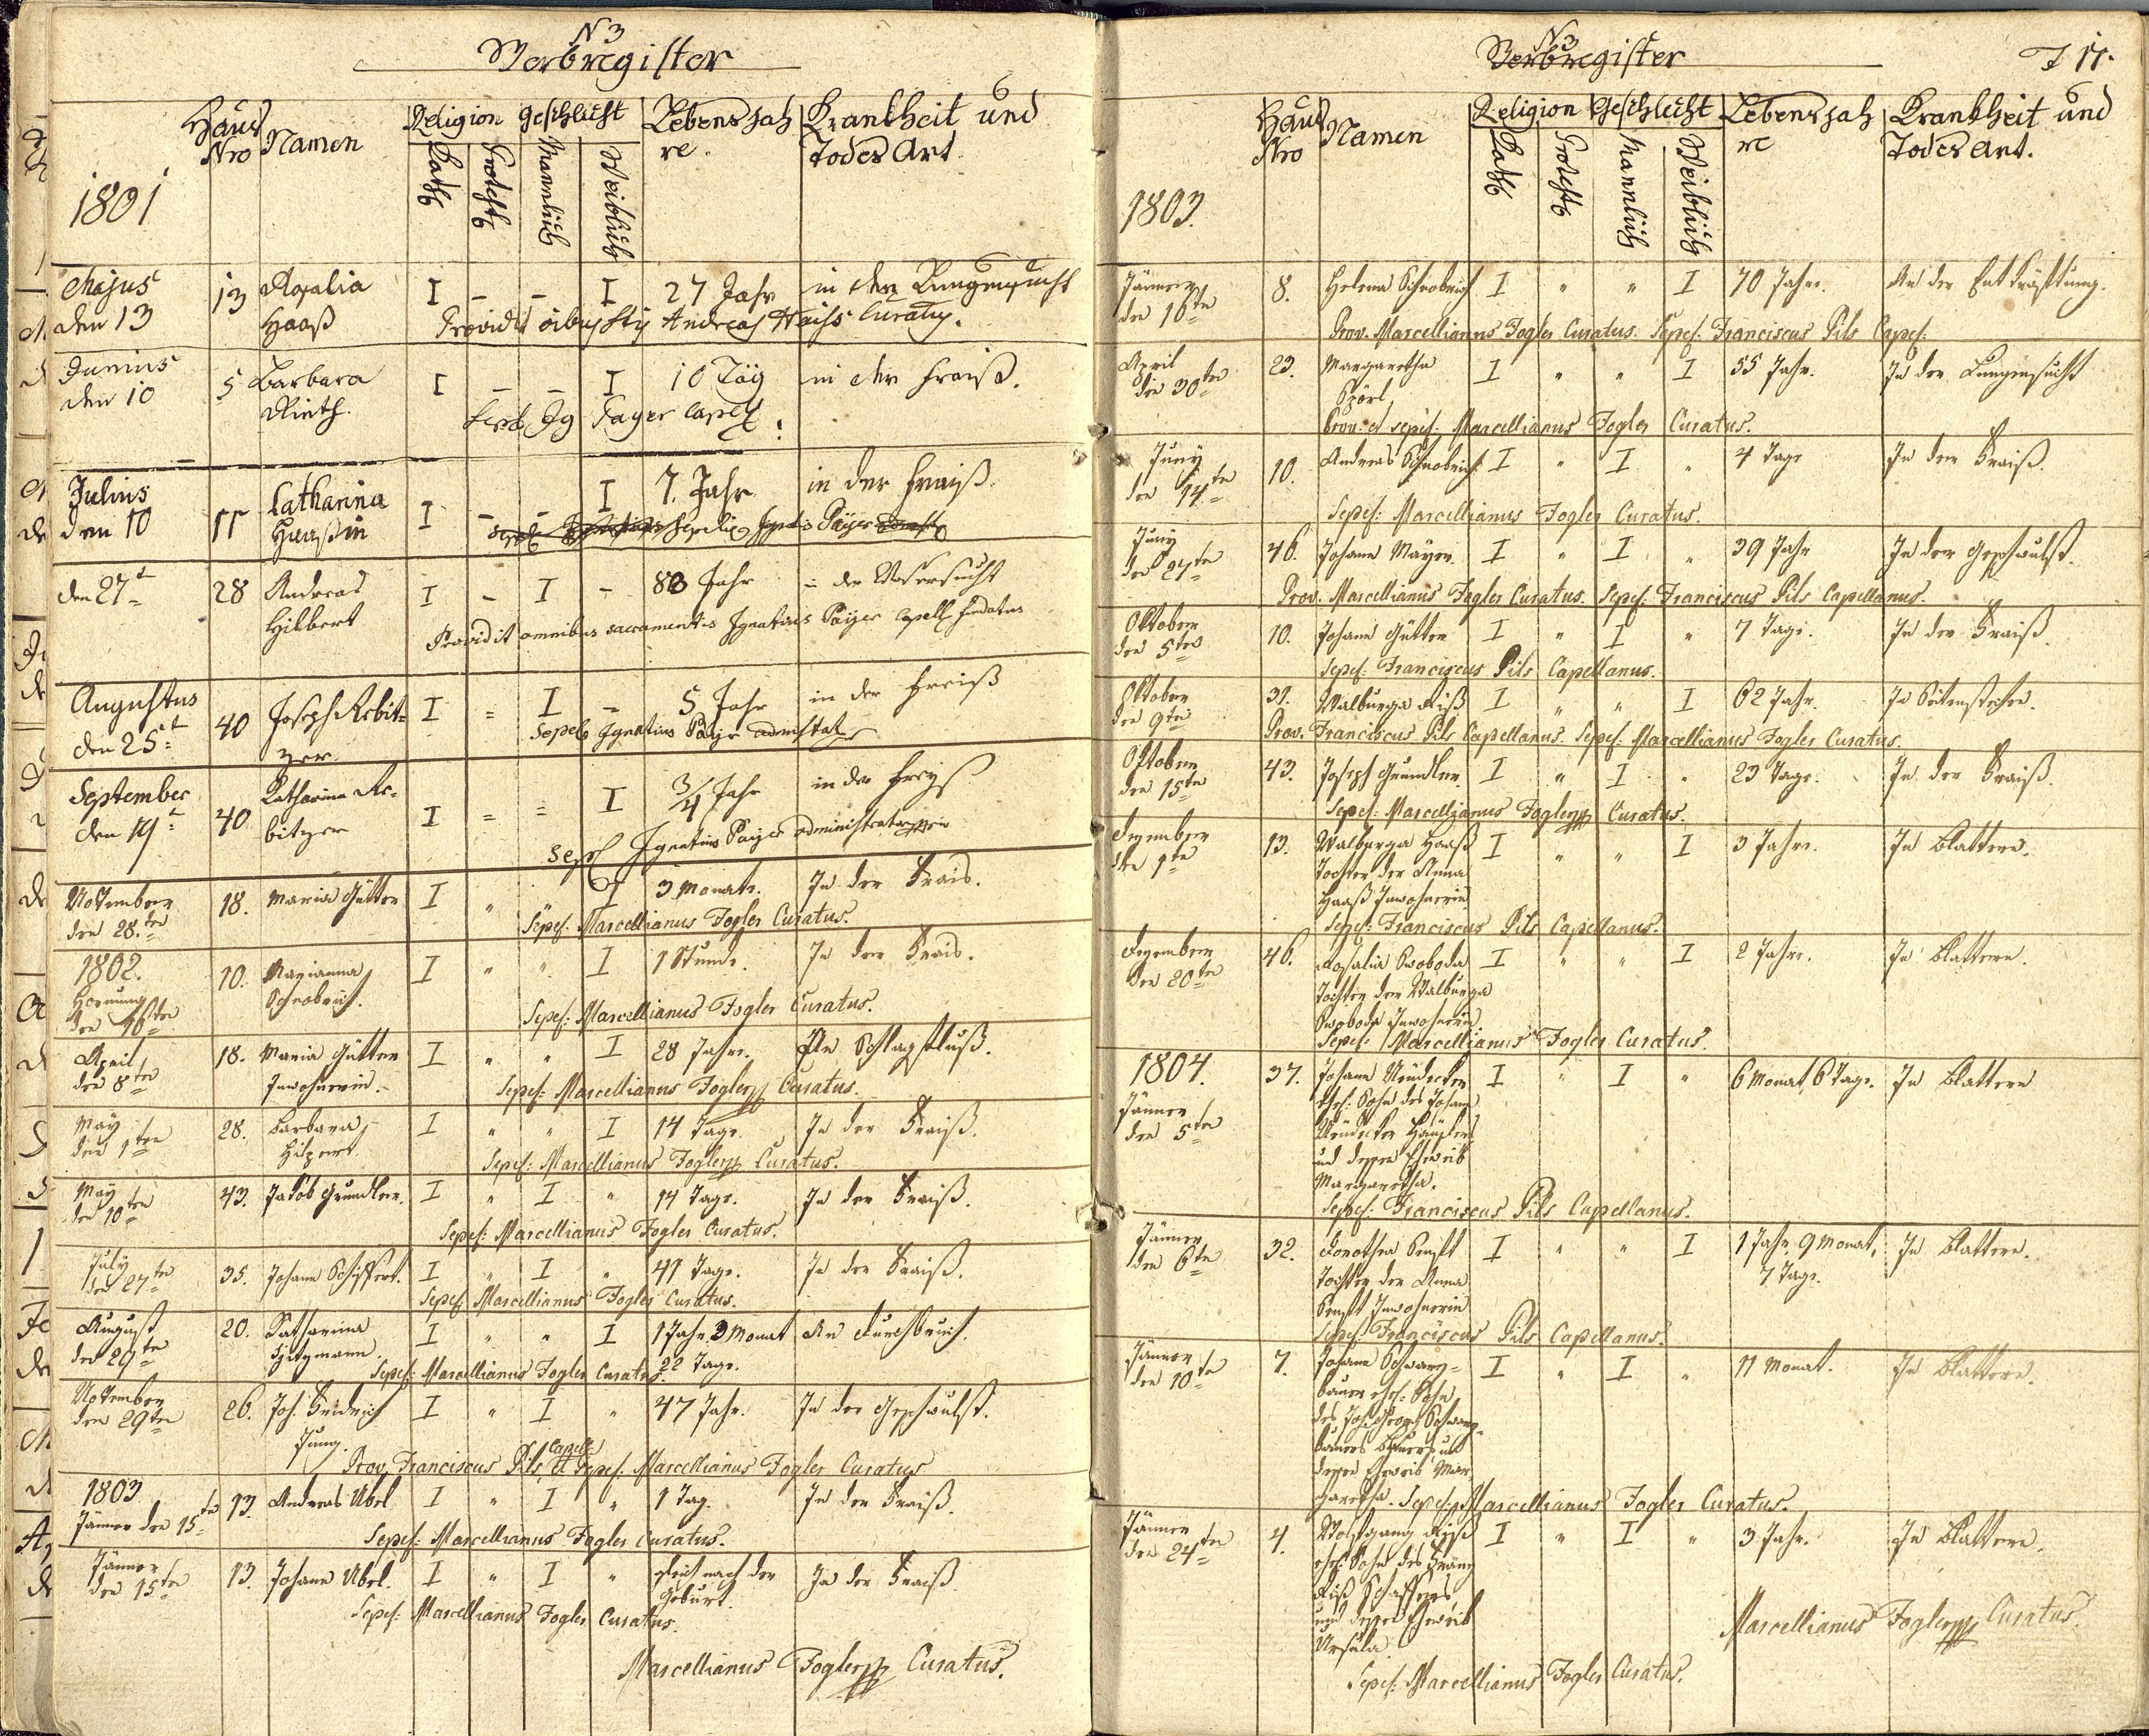 N 3
Sterbregister
Haus Nro
Namen
Religion
Geschlecht
Lebensjah re.
Krankheit und Todes Art.
Cath
Protest
Mannlich
Weiblich
1801
Majus den 13 13 Rosalia Haaß I – – I 27 Jahr in der Lungensucht
Providit oibus Stis Andreas Curatus.
Junius den 10 5 Barbara Rieth. I – – I 10 Täg in der Fraiß.
Capell.
Julius den 10 11 Catharina Haaßin I – – I 7. Jahr in der Fraiß.
Ignatius Päijer
den 27t 28 Andreas Hilbert I – I – 83 Jahr in der Wasersucht
Providit omnibus sacramentis Ignatius Päijer Capell
Augustus den 25t 40 Joseph Rebit= zer I = I = 5 Jahr in der Freiß
Sepel Ignatius Päijer
September den 19t 40 Catharina Re= bitzer I = = I 3/4 Jahr in der Freyß
Sepel Ignatius Päijer administrator
November den 28.ten 18. Maria Gütter I " " I 3 Monate. In der Frais.
Sepel: Marcellianus Fogler Curatus.
1802.
Hornung den 16ten 10. Marianna Schrobrich. I " " I 1 Stunde. In der Frais.
Sepel: Marcellianus Fogler Curatus.
April den 8ten 18. Maria Gütter Inwohnerin. I " " I 28 Jahre. Am Schlagfluß.
Sepel: Marcellianus Fogler Curatus.
May den 1ten 28. Barbara Hilpert I " " I 14 Tage. In der Fraiß.
Sepel: Marcellianus Fogler Curatus.
May den 10ten 43. Jakob Gründler. I " I " 14 Tage. In der Fraiß.
Sepel: Marcellianus Fogler Curatus.
July den 27ten 35. Johann Schiffert. I " I " 41 Tage. In der Fraiß.
Sepel: Marcellianus Fogler Curatus.
August den 29ten 20. Katharina Hitzmann. I " " I 1 Jahr, 3 Monat 22 Tage. An Durchbruch.
Sepel: Marcellianus Fogler Curatus.
November den 29ten 26. Joh. Fridrich Jung. I " I " 47 Jahr. In der Geschwulst.
Prov. Franciscus Pils, Capell: et sepel: Marcellianus Fogler Curatus
1803
Jänner den 15ten 13. Andreas Ubel I " I " 1 Tag. In der Fraiß.
Sepel: Marcellianus Fogler Curatus.
Jänner den 15ten 13. Johann Ubel. I " I " gleich nach der Geburt. In der Fraiß.
Sepel: Marcellianus Fogler Curatus.
Marcellianus Fogler Curatus.
N 3
Sterbregister
Haus Nro
Namen
Religion
Geschlecht
Lebensjah re
Krankheit und Todes Art.
Cath
Protest
Mannlich
Weiblich
1803.
Jänner den 16ten 8. Helena Schrobrich I " " I 70 Jahre. An der Entkräftung.
Prov. Marcellianus Fogler Curatus. Sepel: Franciscus Pils Capel:
April den 30ten 23. Margaretha Spörl I " " I 55 Jahr. In der Lungensucht
Prov: et sepel: Marcellianus Fogler Curatus.
Juny den 14ten 10. Andreas Schrobrich I " I " 4 Tage In der Fraiß.
Sepel: Marcellianus Fogler Curatus.
Juny den 27ten 46. Johann Mayer. I " I " 39 Jahr In der Geschwulst.
Prov. Marcellianus Fogler Curatus. Sepel: Franciscus Pils Capellanus.
Oktober den 5ten 10. Johann Gütter I " I " 7 Tage. In der Fraiß.
Sepel: Franciscus Pils Capellanus.
Oktober den 9ten 31. Walburga Riß I " " I 62 Jahr. In Seitenstechen.
Prov. Franciscus Pils Capellanus. Sepel: Marcellianus Fogler Curatus.
Oktober den 15ten 43. Joseph Gründler. I " I " 23 Tage. In der Fraiß.
Sepel: Marcellianus Fogler Curatus.
Dezember den 1ten 13. Walburga Haaß I " " I 3 Jahre. In Blattern.
Tochter der Anna
Haaß Inwohnerin
Sepel: Franciscus Pils Capellanus.
Dezember den 20ten 46. Rosalia Swoboda I " " I 2 Jahre. In Blattern.
Tochter der Walburga
Swoboda Inwohnerin.
Sepel: Marcellianus Fogler Curatus.
1804.
Jänner den 5ten 37. Johann Neudecker I " I " 6 Monat 6 Tage. In Blattern
ehel: Sohn des Johann
Neudecker Häußlers
und dessen Eheweib
Margaretha.
Sepel: Franciscus Pils Capellanus.
Jänner den 6ten 32. Dorothea Senft I " " I 1 Jahr, 9 Monat, 7 Tage. In Blattern.
Tochter der Anna
Senft Inwohnerin
Sepel: Franciscus Pils Capellanus.
Jänner den 10ten 7. Johann Schwarz= I " I " 11 Monat. In Blattern.
bauer ehel: Sohn
des Joh: Georg Schwarz=
bauers Bauers und
dessen Eheweib Mar
garetha. Sepel: Marcellianus Fogler Curatus.
Jänner den 24ten 4. Wolfgang Riß I " I " 3 Jahr. In Blattern.
ehel: Sohn des Franz
Riß Schaffers
und dessen Eheweib
Ursula.
Marcellianus Fogler Curatus.
Sepel: Marcellianus Fogler Curatus.